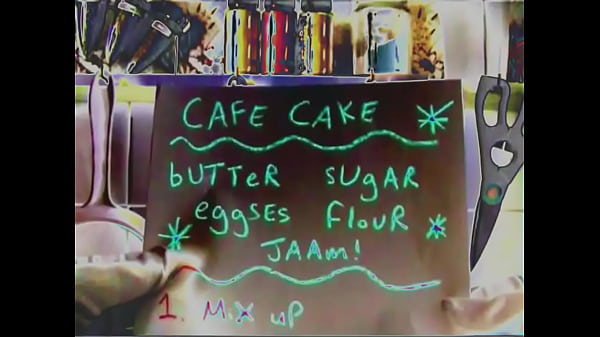 CAFE CAKE
bUTTeR sUgAR
eggSES FloUR
JAAm!
1. Mix up